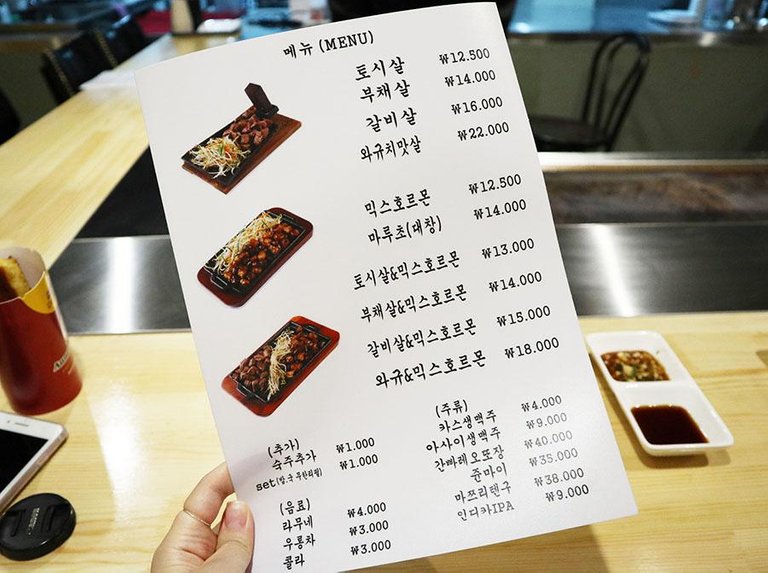 메뉴 (MENU)
토시살 ₩12.500
부채살 ₩14.000
갈비살 ₩16.000
와규치맛살 ₩22.000
믹스호르몬 ₩12.500
마루초(대창) ₩14.000
토시살&믹스호르몬 ₩13.000
부채살&믹스호르몬 ₩14.000
갈비살&믹스호르몬 ₩15.000
와규&믹스호르몬 ₩18.000
(추가)
숙주추가 ₩1.000
set(밥,국 무한리필) ₩1.000
(음료)
라무네 ₩4.000
우롱차 ₩3.000
콜라 ₩3.000
(주류)
카스생맥주 ₩4.000
아사이생맥주 ₩9.000
간빠레오또장 ₩40.000
쥰마이 ₩35.000
마쯔리텐구 ₩38.000
인디카IPA ₩9.000